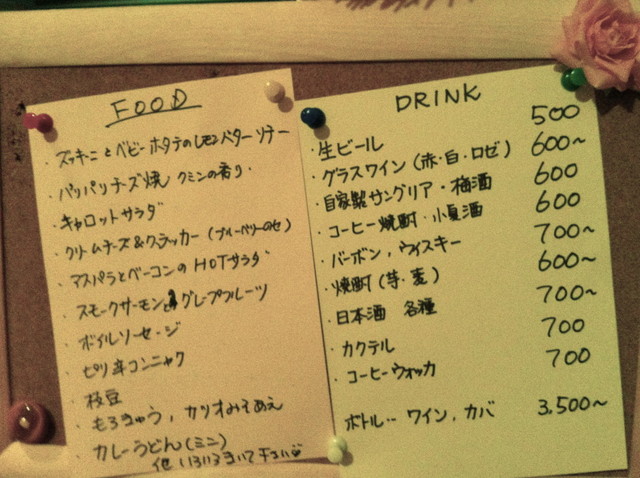 FOOD
・ズッキーニとベビーホタテのレモンバターソテー
・パリパリチーズ焼 クミンの香り
・キャロットサラダ
・クリームチーズ&クラッカー(ブルーベリーのせ)
・アスパラとベーコンのHOTサラダ
・スモークサーモンとグレープフルーツ
・ボイルソーセージ
・ピリ辛コンニャク
・枝豆
・もろきゅう,カツオみそあえ
・カレーうどん(ミニ)
他いろいろきいて下さい
DRINK
・生ビール 500
・グラスワイン(赤・白・ロゼ) 600~
・自家製サングリア・梅酒 600
・コーヒー焼酎・小夏酒 600
・バーボン,ウィスキー 700~
・焼酎(芋・麦) 600~
・日本酒 各種 700~
・カクテル 700
・コーヒーウォッカ 700
ボトル… ワイン,カバ 3,500~